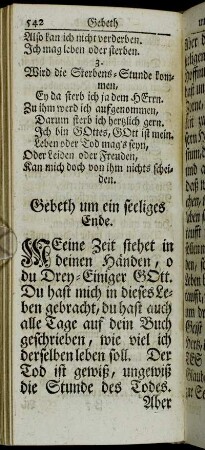 542 Gebeth
Also kan ich nicht verderben.
Ich mag leben oder sterben.
3.
Wird die Sterbens-Stunde kom-
men,
Ey da sterb ich ja dem HErrn.
Zu ihm werd ich aufgenommen,
Darum sterb ich hertzlich gern.
Ich bin GOttes, GOtt ist mein.
Leben oder Tod mag's seyn,
Oder Leiden oder Freuden,
Kan mich doch von ihm nichts schei-
den.
Gebeth um ein seeliges
Ende.
MEeine Zeit stehet in
deinen Händen, o
du Drey-Einiger GOtt.
Du hast mich in dieses Le-
ben gebracht, du hast auch
alle Tage auf dein Buch
geschrieben, wie viel ich
derselben leben soll. Der
Tod ist gewiß, ungewiß
die Stunde des Todes.
Aber